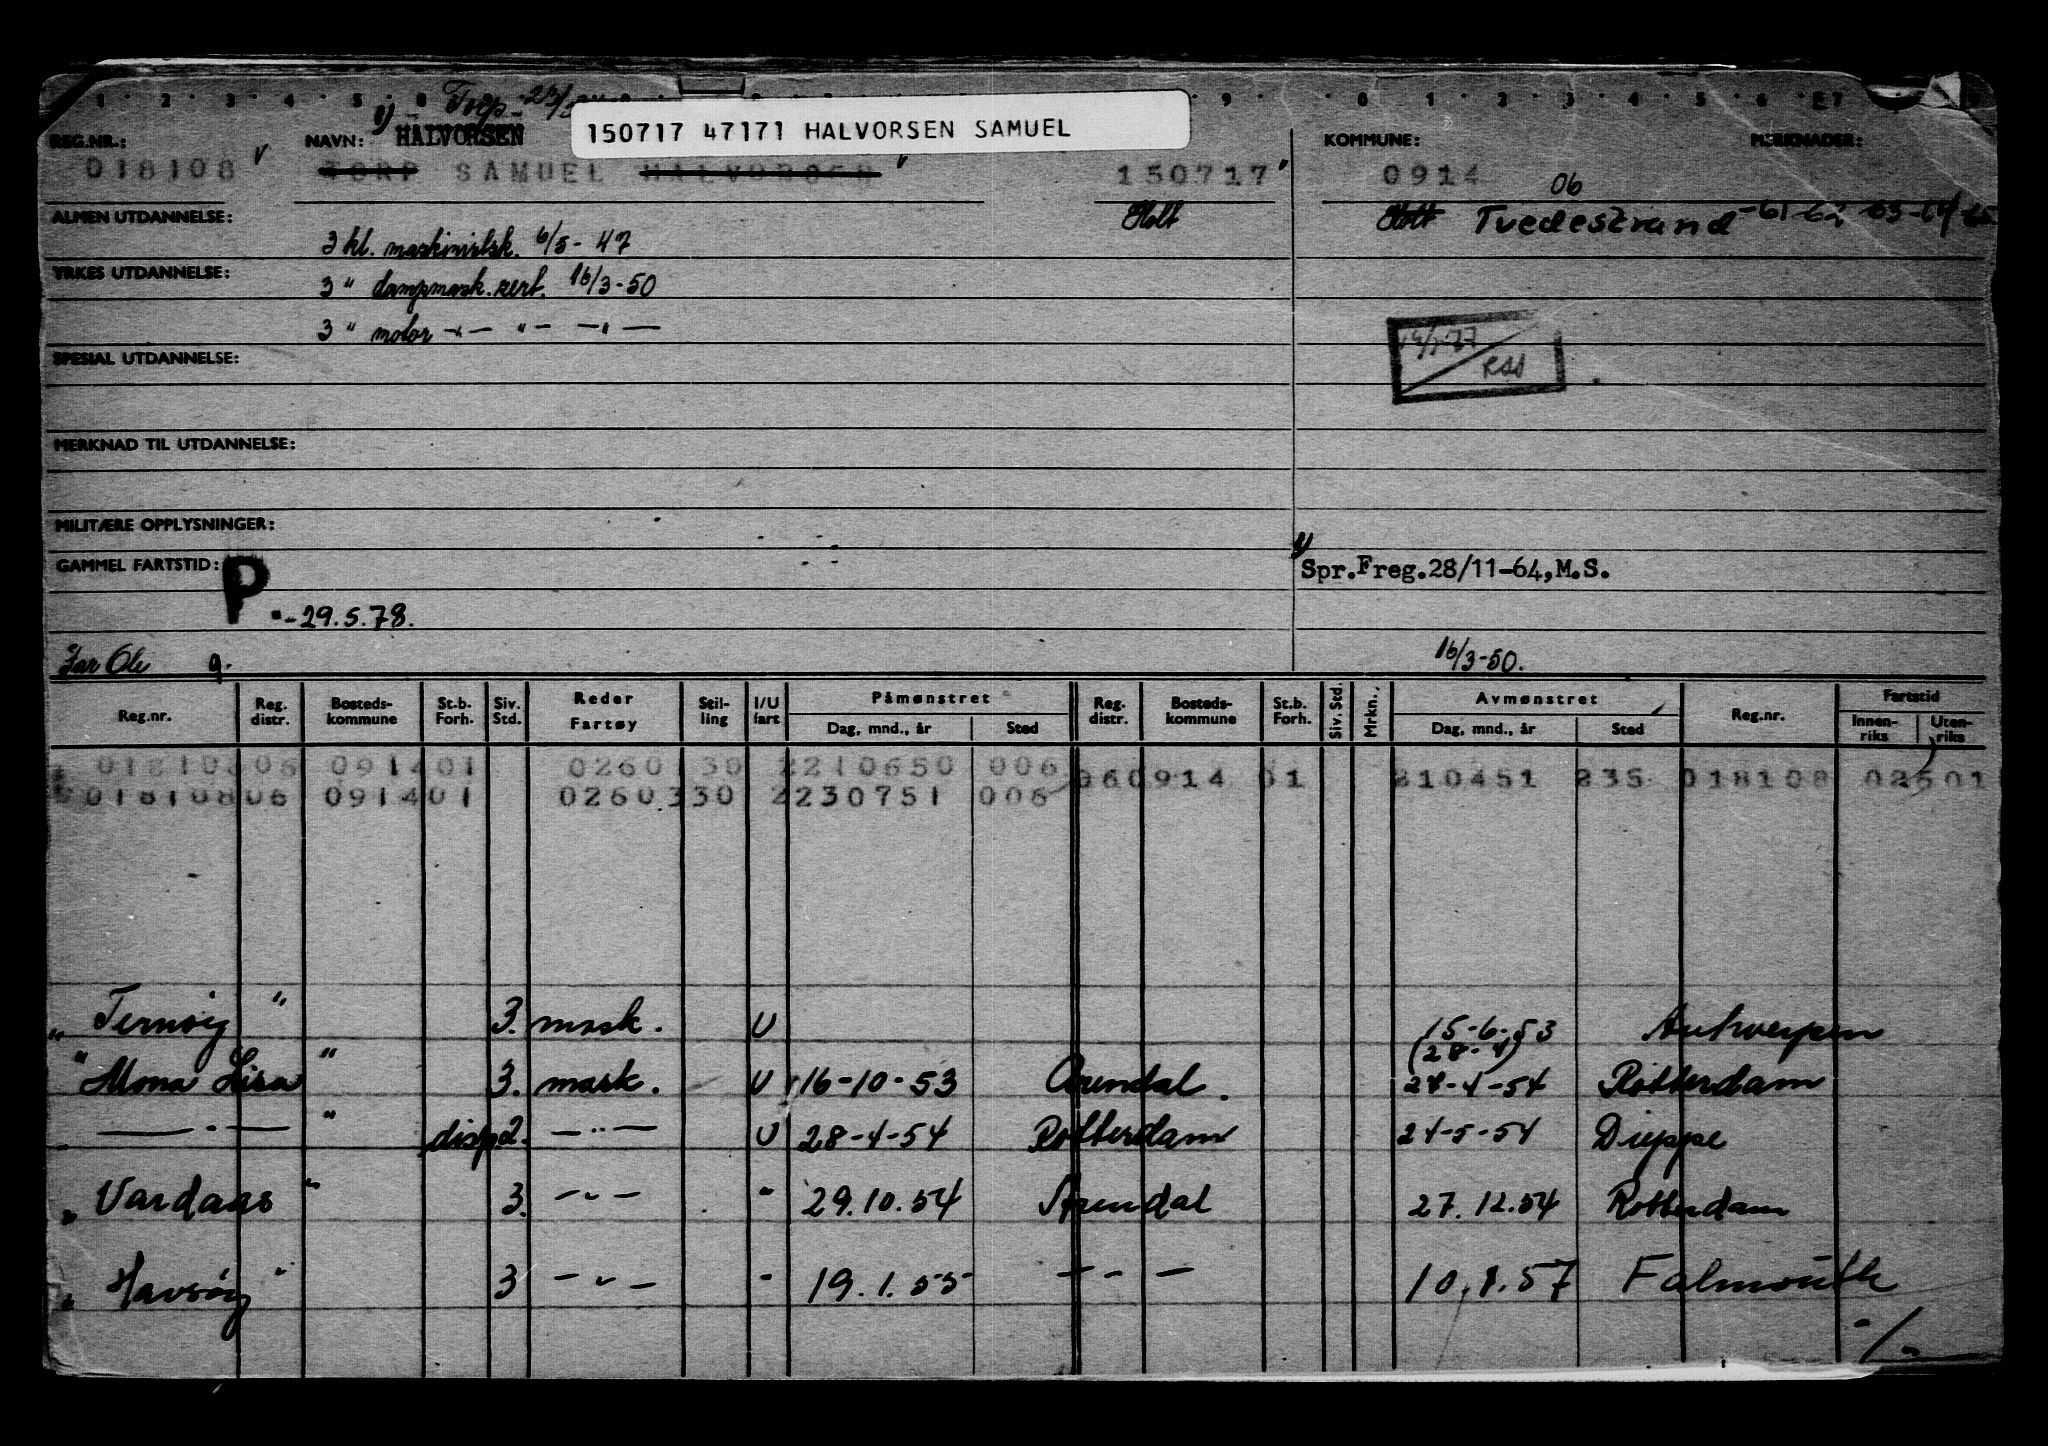 1 2 3 4 5
Torp
150717 47171 HALVORSEN SAMUEL
REG.NR.: NAVN: HALVORSEN KOMMUNE: MERKNADER:
018108 TORP SAMUEL HALVORSEN 150717 0914 06
ALMEN UTDANNELSE: Holt Holt Tvedestrand
3 kl. maskinistsk. 6/5-47
YRKES UTDANNELSE:
3 " dampmask.sert. 16/3-50
3 " motor -"- "- -"-
SPESIAL UTDANNELSE:
MERKNAD TIL UTDANNELSE:
MILITÆRE OPPLYSNINGER:
GAMMEL FARTSTID: P Spr.Freg.28/11-64,M.S.
-29.5.78.
Far Ole 9. 16/3-50.
Reg.nr. Reg. distr. Bosteds-kommune St.b. Forh. Siv. Std. Reder Fartøy Stil-ling I/U fart Påmønstret Dag, mnd., år Sted Reg. distr. Bosteds-kommune St.b. Forh. Siv. Std. Mrkn. Avmønstret Dag, mnd., år Sted Reg.nr. Fartstid Innen-riks Uten-riks
01810806 091401 0260330 2210650 006 060914 01 210451 235 018108 02501
01810806 091401 0260330 2230751 006
" Ternøy " 3. mask. U 15-6-53 Antwerpen
(28-4)
" Mona Lisa " 3. mask. U 16-10-53 Arendal. 24-4-54 Rotterdam
—"— " disp. 2. —"— U 28-4-54 Rotterdam 24-5-54 Dieppe
" Vardaas " 3. -"- " 29.10.54 Arendal 27.12.54 Rotterdam
" Havsøy " 3 -"- " 19.1.55 -"- 10.1.57 Falmouth
-/-